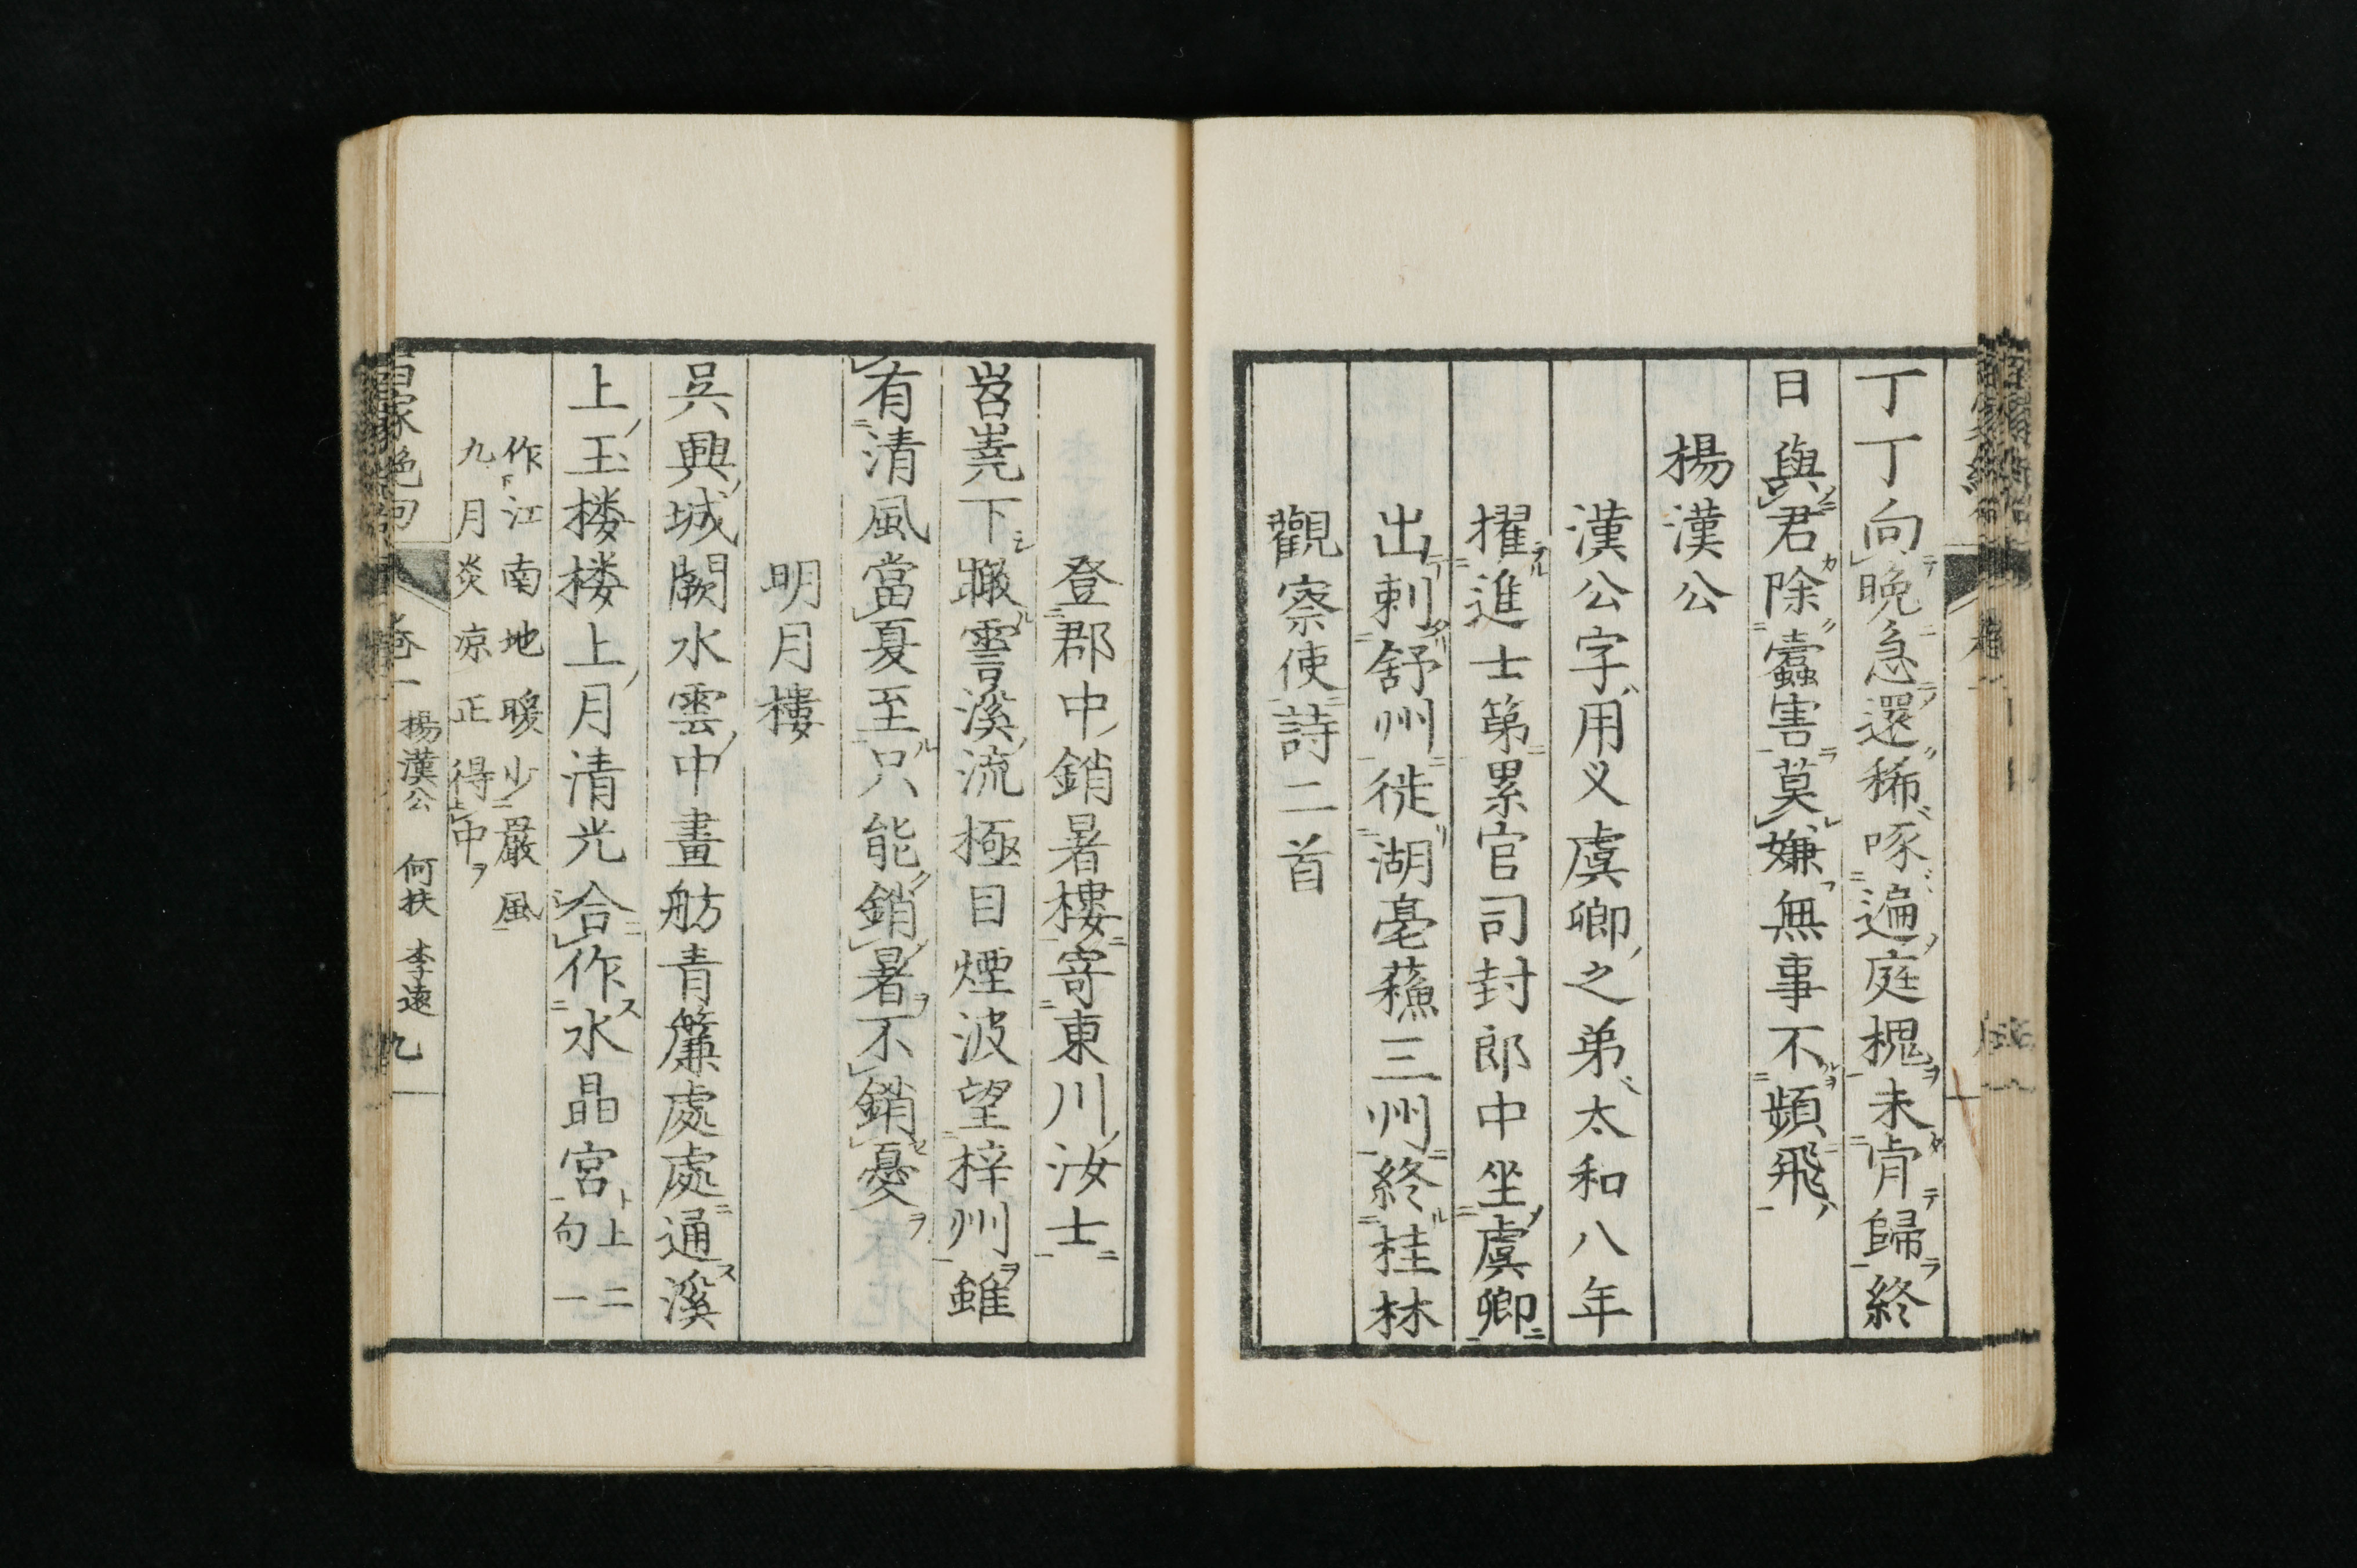 丁丁向晚急還稀啄遍庭槐未肯歸終
日與君除蠹害莫嫌無事不頻飛
楊漢公
漢公字用乂虞卿之弟太和八年
擢進士第累官司封郎中坐虞卿
出刺舒州徙湖亳蘓三州終桂林
觀察使詩二首
登郡中銷暑樓寄東川汝士
岧嶤下瞰霅溪流極目煙波望梓州雖
有清風當夏至只能銷暑不銷憂
明月樓
吳興城闕水雲中畫舫青簾處處通溪
上玉楼楼上月清光合作水晶宮上二
一句
作江南地暖少嚴風
九月炎凉正得中
百家絶句 卷一 楊漢公 何扶 李遠 九